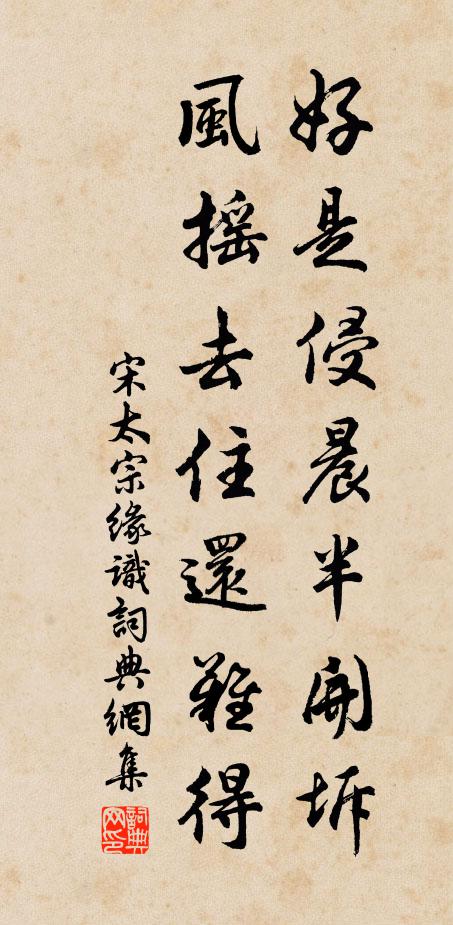 好是侵晨半開坼
風搖去住還難得
宋太宗緣識詞典網集
詞典網印